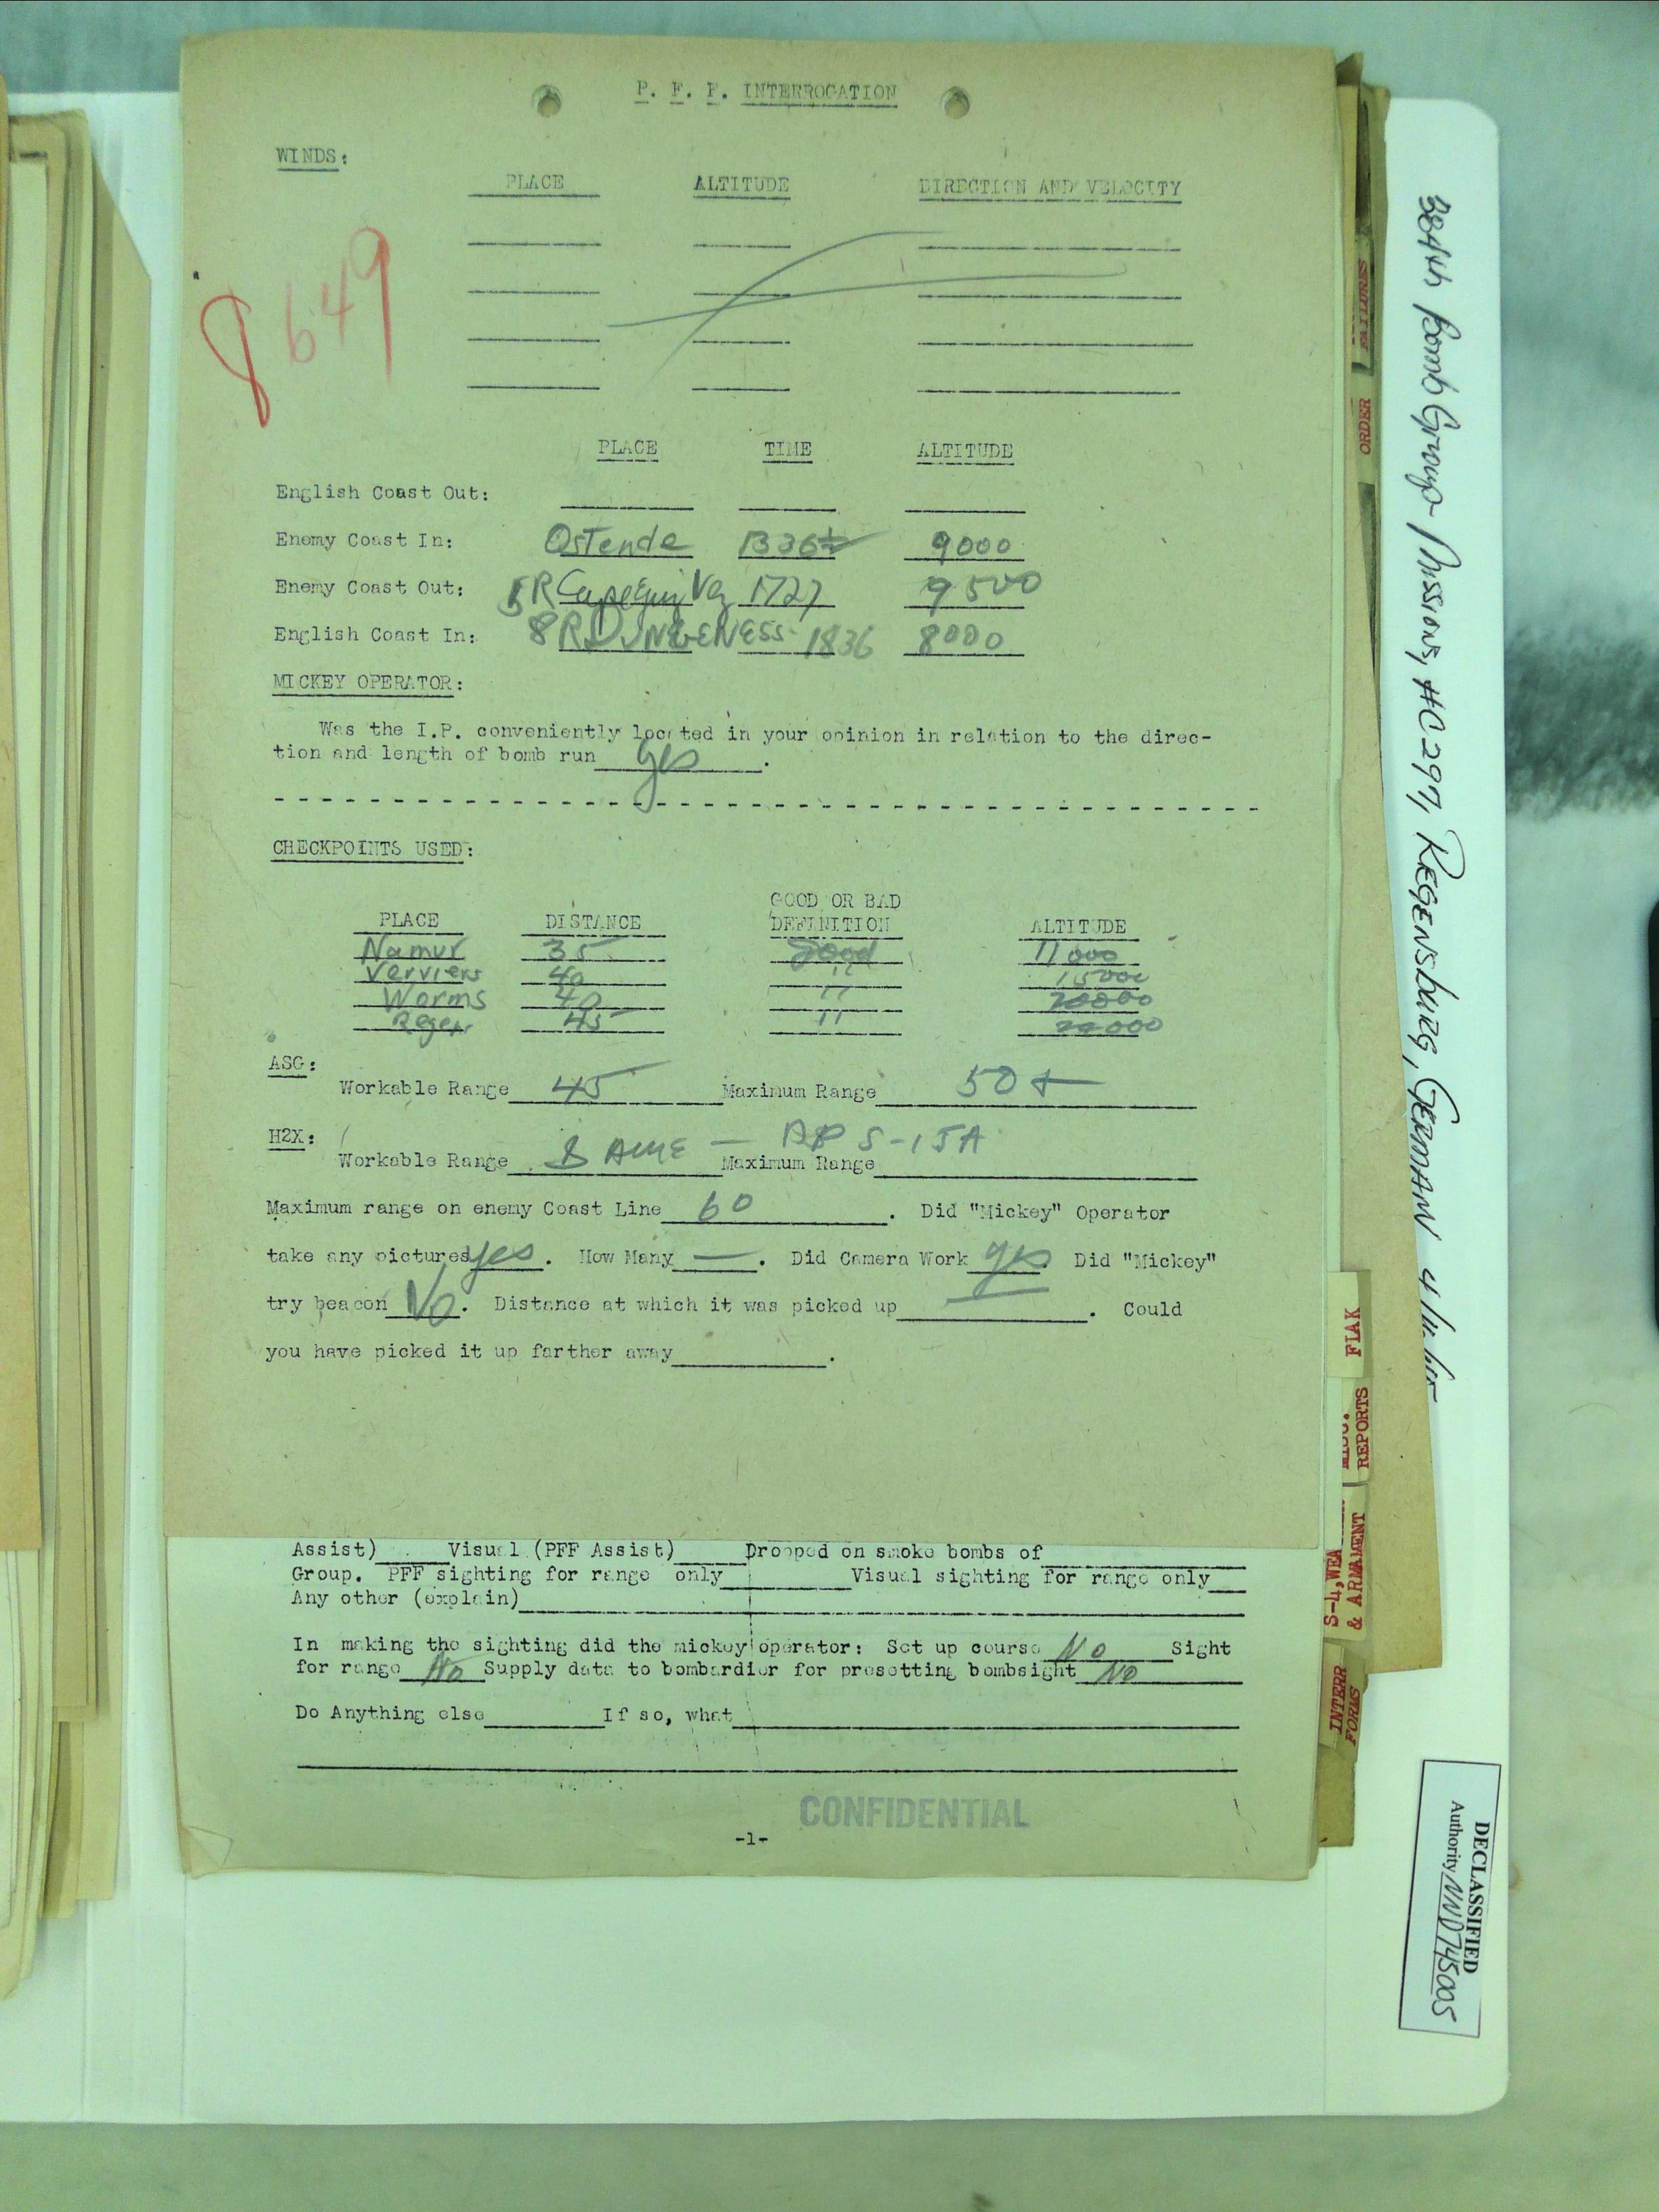 P. F. F. INTERROGATION
WINDS:
PLACE ALTITUDE DIRECTION AND VELOCITY
649
PLACE TIME ALTITUDE
English Coast Out:
Enemy Coast In: Ostende 1336½ 9000
Enemy Coast Out: 5R 1727 9500
English Coast In: 8R DUNGENESS 1836 8000
MICKEY OPERATOR:
Was the I.P. conveniently located in your opinion in relation to the direc-
tion and length of bomb run yes.
CHECKPOINTS USED:
GOOD OR BAD
PLACE DISTANCE DEFINITION ALTITUDE
Namur 35 good 11000
Verviers 40 " 15000
Worms 40 " 20000
Regen. 45 " 22000
ASG:
Workable Range 45 Maximum Range 50+
H2X:
Workable Range SAME — APS-15A Maximum Range
Maximum range on enemy Coast Line 60. Did "Mickey" Operator
take any pictures yes. How Many —. Did Camera Work yes. Did "Mickey"
try beacon No. Distance at which it was picked up —. Could
you have picked it up farther away.
Assist) Visual (PFF Assist) Dropped on smoke bombs of
Group. PFF sighting for range only Visual sighting for range only
Any other (explain)
In making the sighting did the mickey operator: Set up course NO Sight
for range No Supply data to bombardier for presetting bombsight NO
Do Anything else If so, what
CONFIDENTIAL
-1-
FAILURES
ORDER
FLAK
MISC.
REPORTS
S-4, WEA
& ARMAMENT
INTERR
FORMS
384th Bomb Group Missions, #C297, REGENSBURG, GERMANY 4/11/45
DECLASSIFIED
Authority NND745005